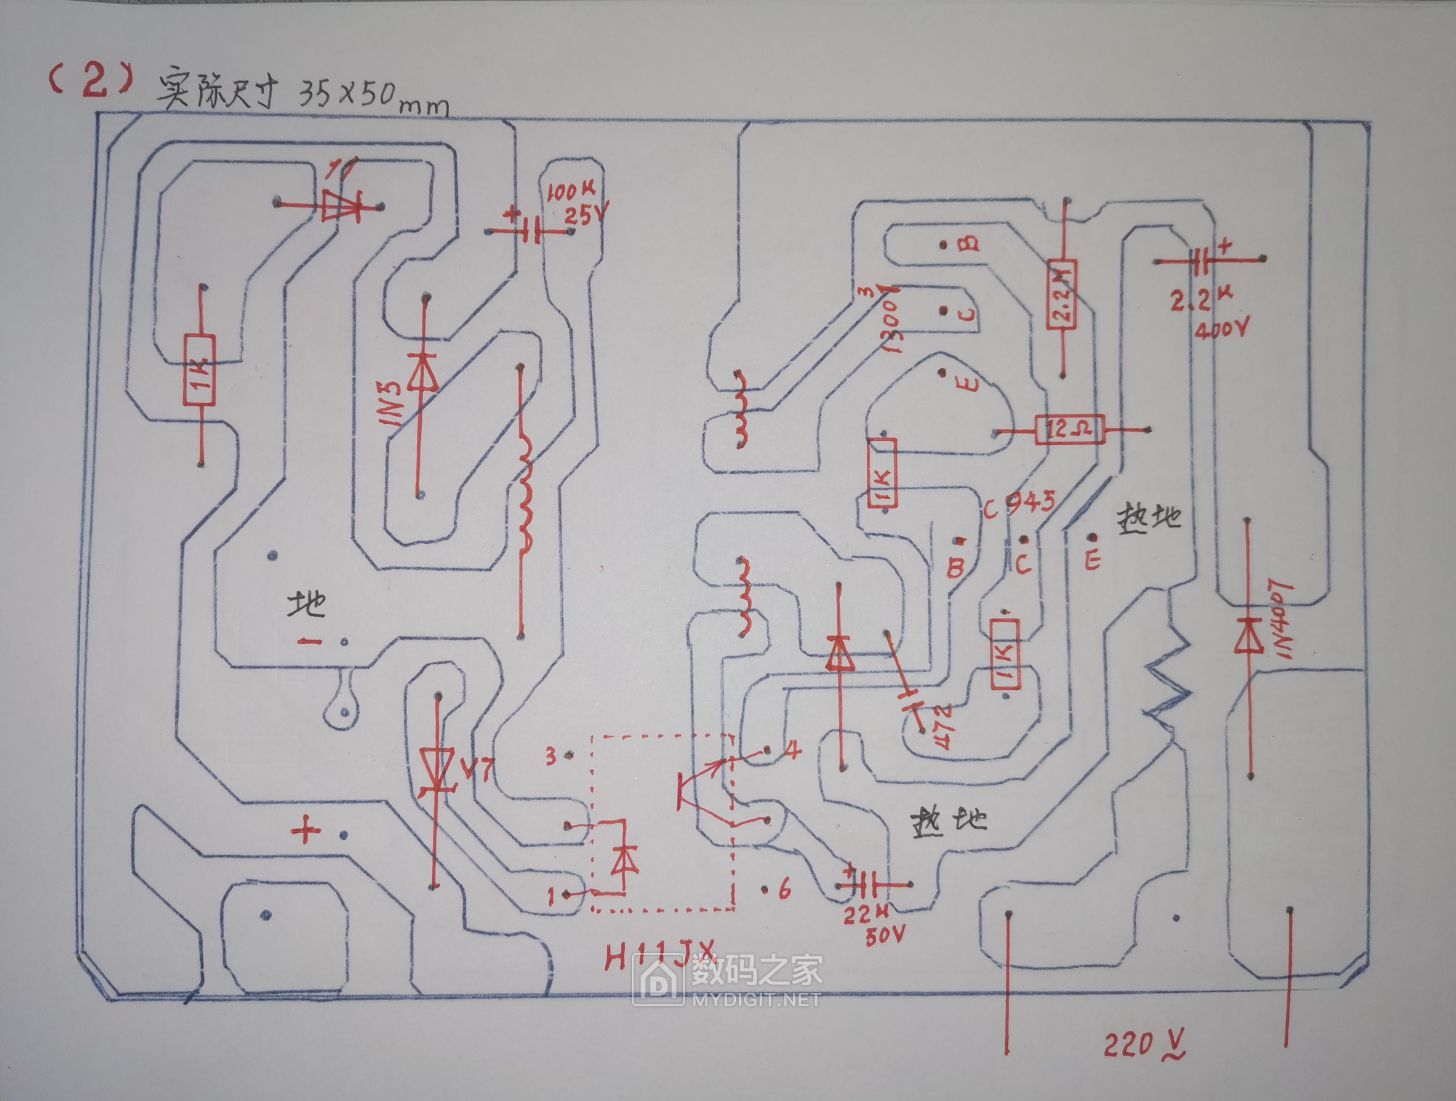 (2) 实际尺寸 35×50mm
100μ
25V
+
B
+
2.2M
2.2μ
400V
3
13007
C
1K
1N5
E
12Ω
1K
C945
热地
B
C
E
地
-
1N4007
1K
472
V7
3
4
+
热地
1
6
+
22μ
50V
H11JX
数码之家
MYDIGIT.NET
220V
~